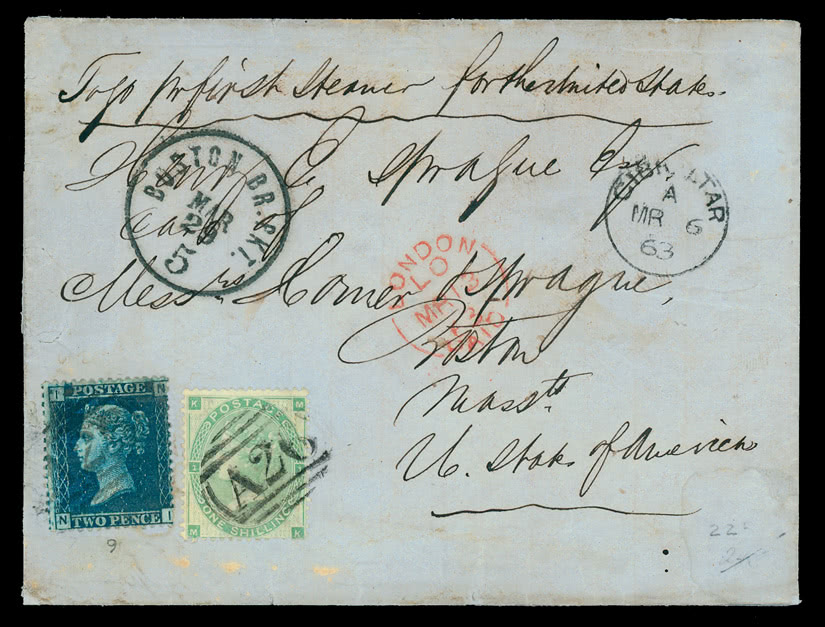 To go pr first Steamer for the United States.
BOSTON BR. PKT.
MAR
5
Horn. C. Sprague Esq
Care of
GIBRALTAR
A
MR 6
63
LONDON
MR 13
PAID
Messrs Homer & Sprague,
Boston
Masstts
U. States of America
I POSTAGE N
N TWO PENCE I
K POSTAGE M
M ONE SHILLING K
A26
9
22